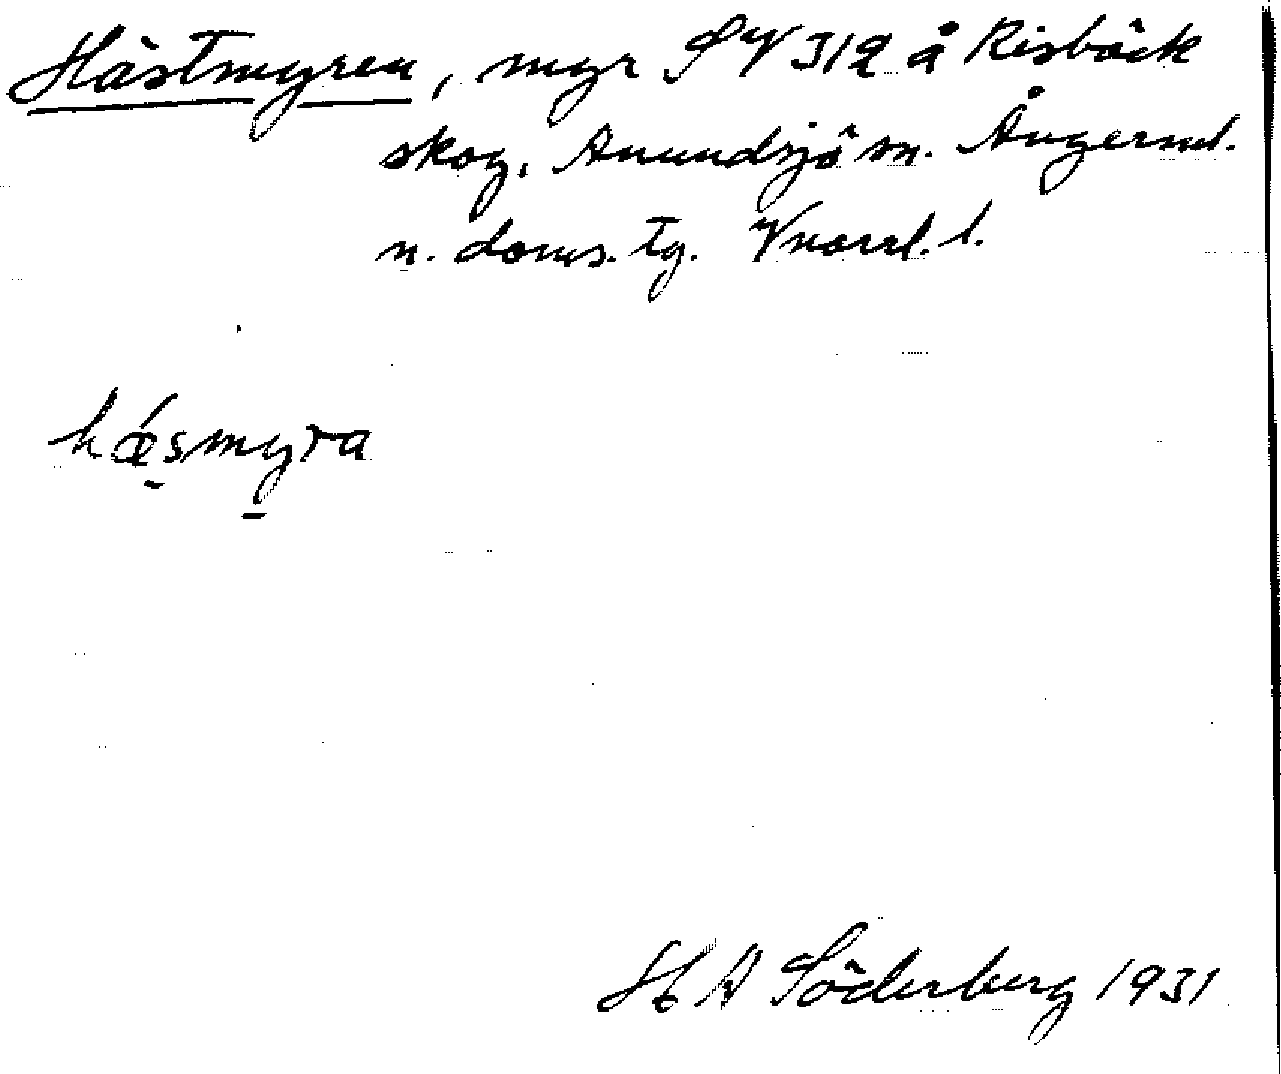 Hästmyren, myr SV 312 å Risbäck
skog, Anundsjö sn. Ångerml.
n. doms. tg. Vnorrl. l.
hǽsmyra
H A Söderberg 1931